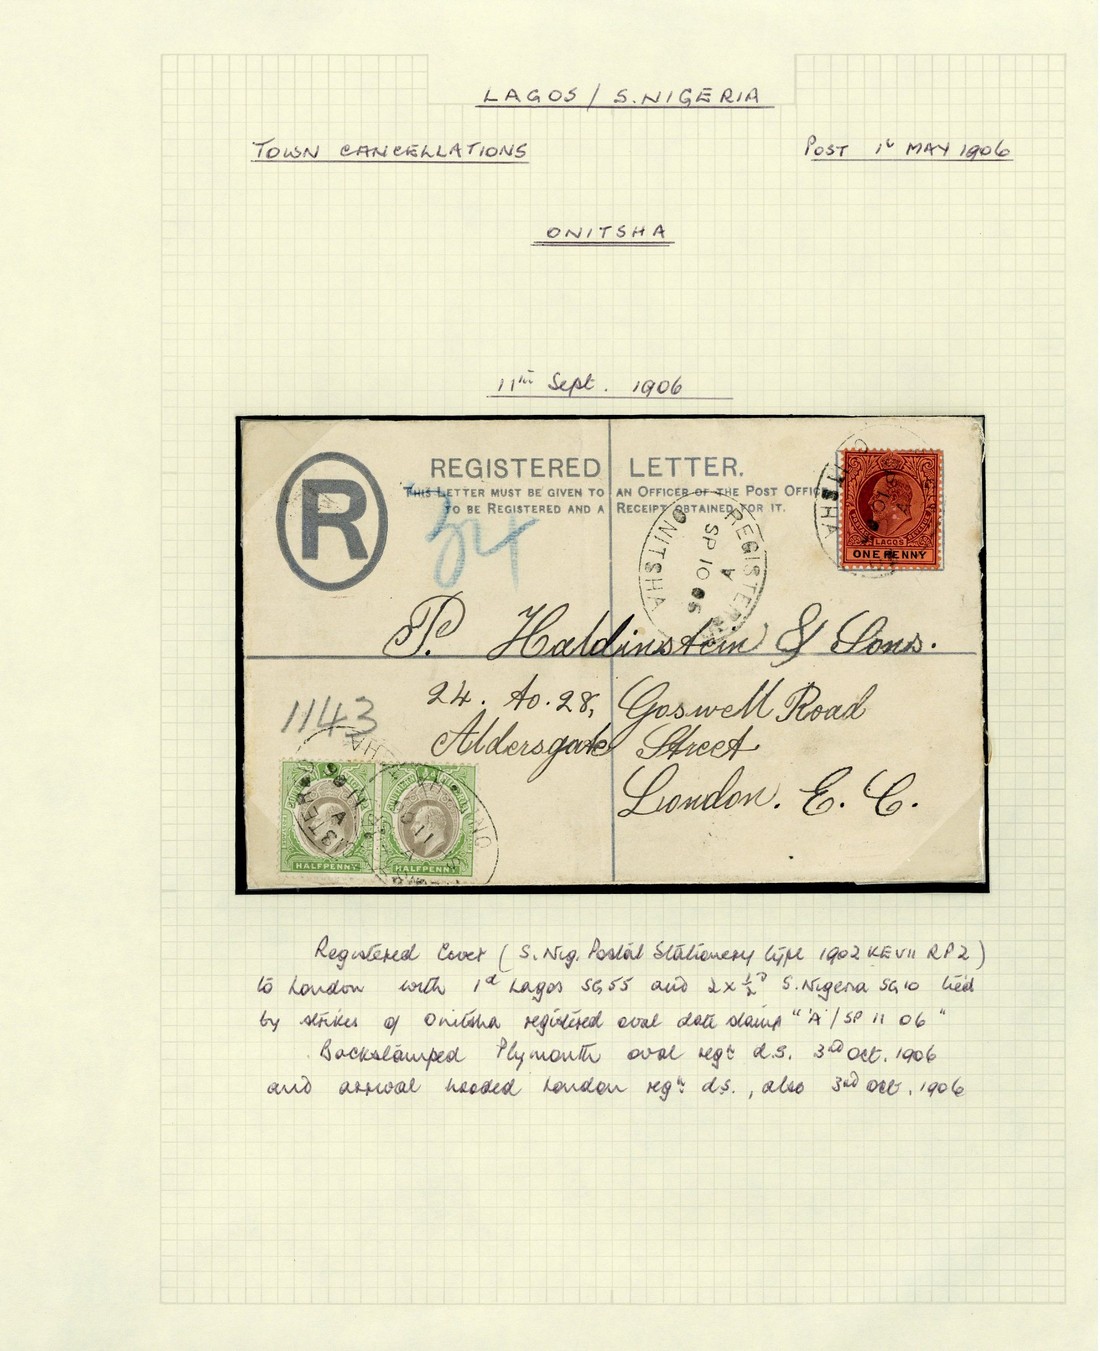 LAGOS / S. NIGERIA
TOWN CANCELLATIONS
POST 1st MAY 1906
ONITSHA
11th Sept. 1906
REGISTERED LETTER.
THIS LETTER MUST BE GIVEN TO AN OFFICER OF THE POST OFFIC
TO BE REGISTERED AND A RECEIPT OBTAINED FOR IT.
R
34
ONITSHA
LAGOS
ONE PENNY
REGISTER
A
SP 10 06
ONITSHA
P. Haldinstein & Sons.
24. to. 28, Goswell Road
Aldersgate Street
London. E. C.
1143
HALFPENNY
HALFPENNY
Registered Cover (S. Nig. Postal Stationery type 1902 KEVII RP2)
to London with 1d Lagos SG55 and 2 x ½d S. Nigeria SG10 tied
by strikes of Onitsha registered oval date stamp "'A'/ SP 11 06"
Backstamped Plymouth oval regd d.s. 3rd Oct. 1906
and arrival hooded London regd d.s., also 3rd Oct. 1906